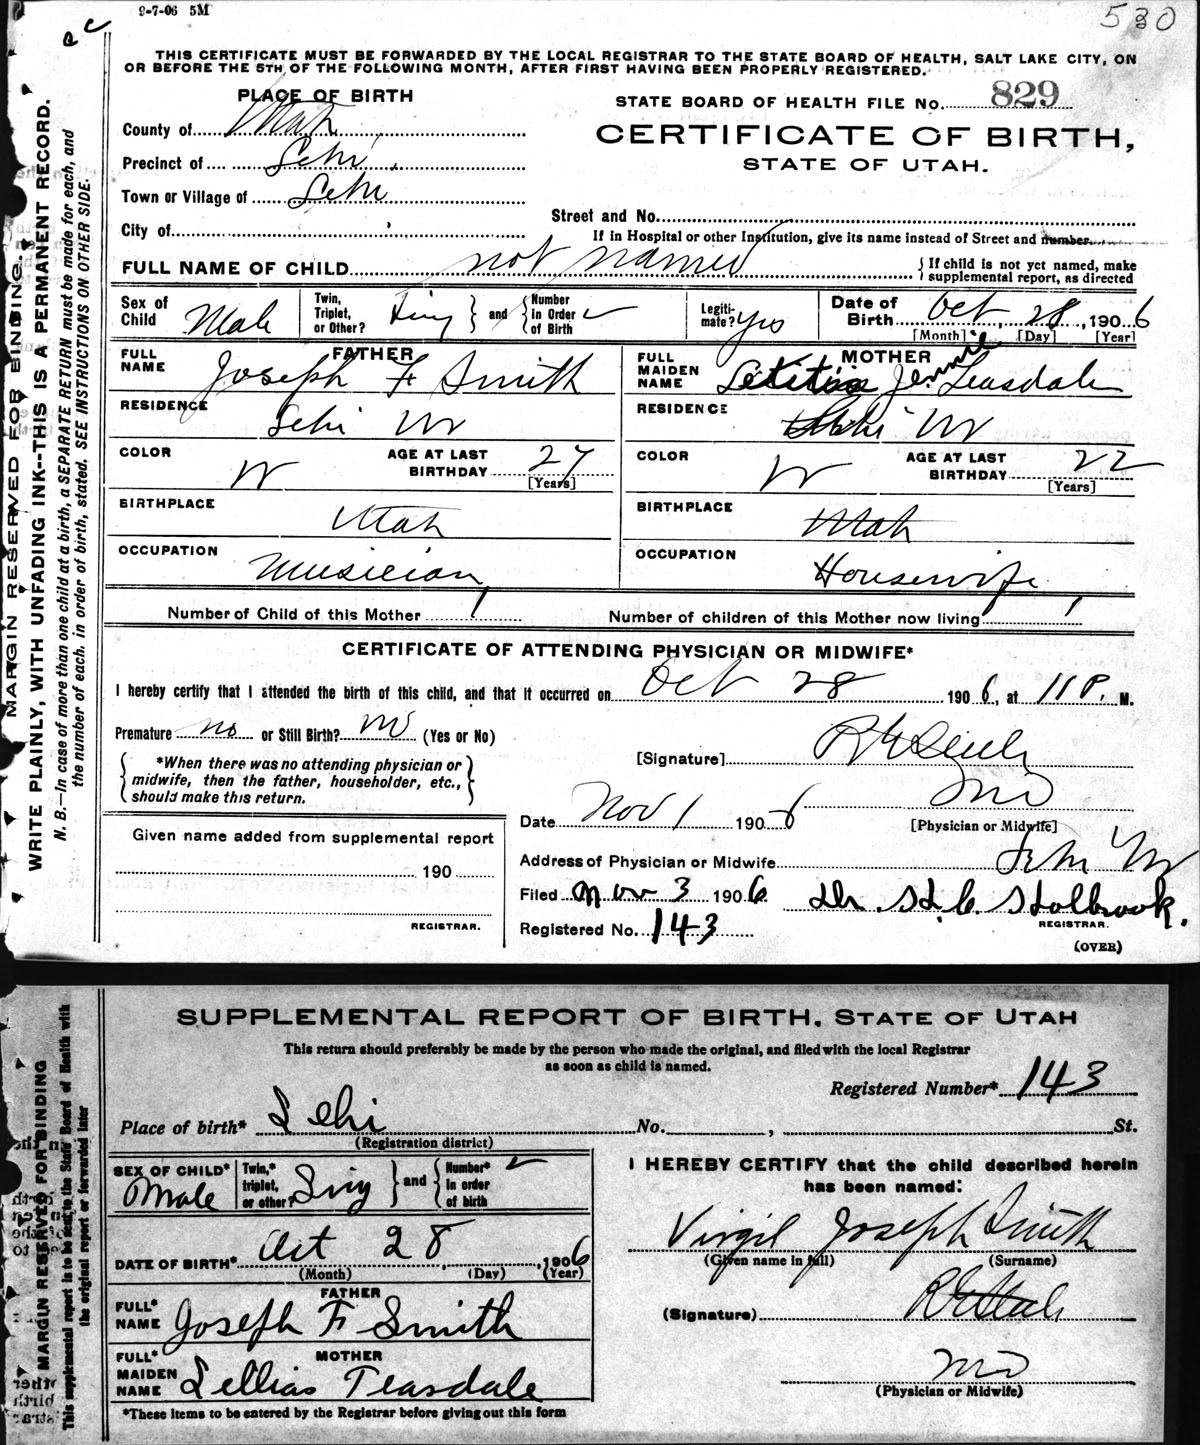 9-7-06 5M
530
THIS CERTIFICATE MUST BE FORWARDED BY THE LOCAL REGISTRAR TO THE STATE BOARD OF HEALTH, SALT LAKE CITY, ON
OR BEFORE THE 5TH OF THE FOLLOWING MONTH, AFTER FIRST HAVING BEEN PROPERLY REGISTERED.
MARGIN RESERVED FOR BINDING.
WRITE PLAINLY, WITH UNFADING INK--THIS IS A PERMANENT RECORD.
N. B.—In case of more than one child at a birth, a SEPARATE RETURN must be made for each, and
the number of each, in order of birth, stated. SEE INSTRUCTIONS ON OTHER SIDE.
PLACE OF BIRTH
County of Utah
Precinct of Lehi
Town or Village of Lehi
City of
STATE BOARD OF HEALTH FILE No. 829
CERTIFICATE OF BIRTH,
STATE OF UTAH.
Street and No.
If in Hospital or other Institution, give its name instead of Street and number.
FULL NAME OF CHILD not named
{ If child is not yet named, make
supplemental report, as directed
Sex of Child Male
Twin, Triplet, or Other? } and { Number in Order of Birth
Legiti- mate? yes
Date of Birth Oct 28, 1906
[Month] [Day] [Year]
FATHER
FULL NAME Joseph F Smith
RESIDENCE Lehi
COLOR W AGE AT LAST BIRTHDAY 27
[Years]
BIRTHPLACE Utah
OCCUPATION Musician
MOTHER
FULL MAIDEN NAME Jennie Teasdale
RESIDENCE Lehi
COLOR W AGE AT LAST BIRTHDAY 22
[Years]
BIRTHPLACE Utah
OCCUPATION Housewife
Number of Child of this Mother 1
Number of children of this Mother now living 1
CERTIFICATE OF ATTENDING PHYSICIAN OR MIDWIFE*
I hereby certify that I attended the birth of this child, and that it occurred on Oct 28 1906, at 11 P. M.
Premature no or Still Birth? no (Yes or No)
{ *When there was no attending physician or
midwife, then the father, householder, etc.,
should make this return. }
[Signature]
MD
[Physician or Midwife]
Date Nov 1 1906
Address of Physician or Midwife Lehi
Filed Nov 3 1906 Dr. H.C. Holbrook.
REGISTRAR.
Registered No. 143
(OVER)
Given name added from supplemental report
190
REGISTRAR.
SUPPLEMENTAL REPORT OF BIRTH, STATE OF UTAH
This return should preferably be made by the person who made the original, and filed with the local Registrar
as soon as child is named.
MARGIN RESERVED FOR BINDING
This supplemental report is to be sent to the State Board of Health with
the original report or forwarded later
Registered Number* 143
Place of birth* Lehi No. , St.
(Registration district)
SEX OF CHILD* Male
Twin,* triplet, or other? Sing } and { Number* in order of birth
DATE OF BIRTH* Oct 28, 1906
(Month) (Day) (Year)
FATHER
FULL* NAME Joseph F Smith
MOTHER
FULL* MAIDEN NAME Lellias Teasdale
*These items to be entered by the Registrar before giving out this form
I HEREBY CERTIFY that the child described herein
has been named:
Virgil Joseph Smith
(Given name in full) (Surname)
(Signature)
MD
(Physician or Midwife)